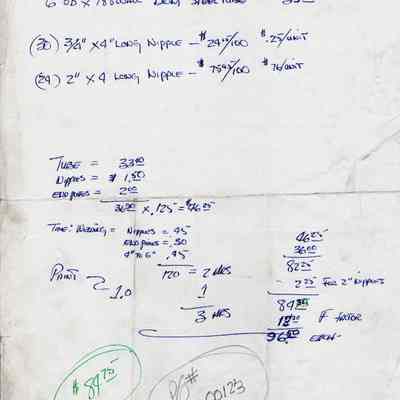 6" OD x
(30) 3/4" x 4" LONG NIPPLE - $ 24 /100 $.25/UNIT
(24) 2" x 4 LONG NIPPLE - $ 75 /100 $.76/UNIT
TUBE = 33.00
NIPPLES = $ 1.50
END PLATES = 2.00
36.50 x .125 = $46.25
TIME: WELDING = NIPPLES = .45
END PLATES = .30
4" TO 6" .45
120 = 2 HRS
PAINT ~ 1.0
1
3 HRS
46.25
36.00
82.25
- 2.25 FOR 2" NIPPLES
84.50
12.00 F FACTOR
96.50 EACH
$ 84.25
PO# 00123